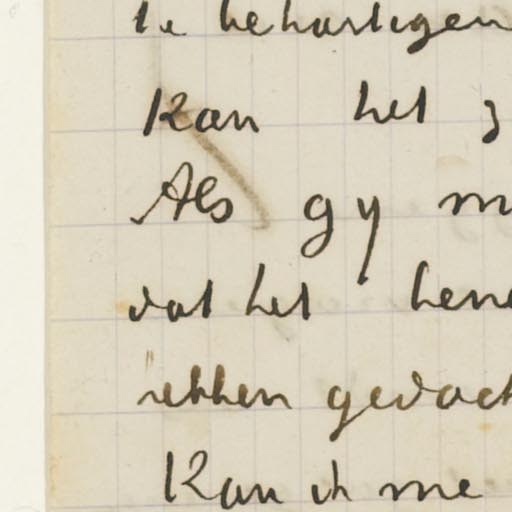 te behartigen
Kan het z
Als gy m
dat het hen
rekken gedach
Kan ik me